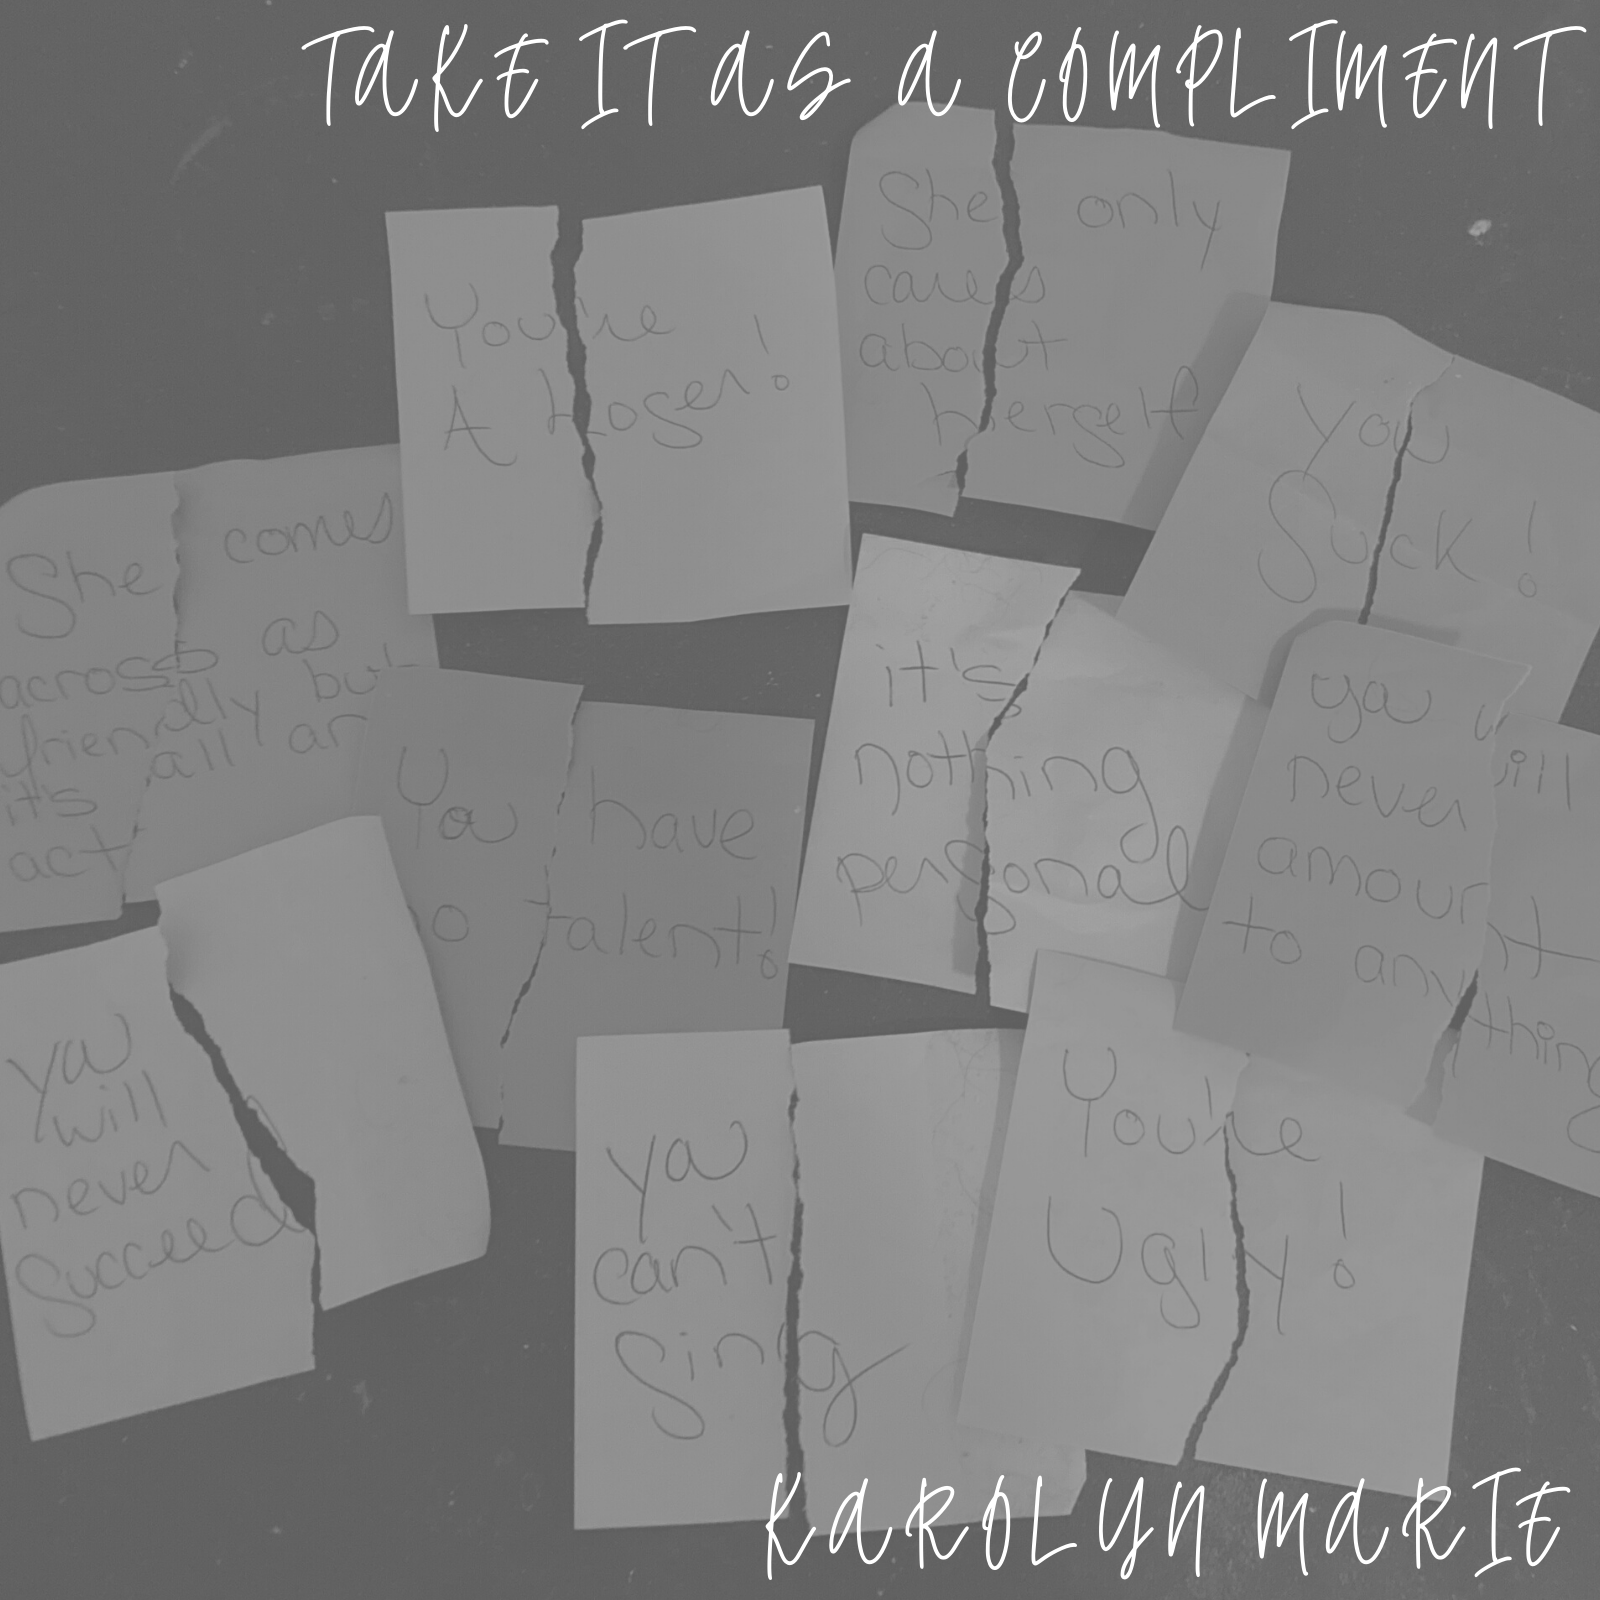 TAKE IT AS A COMPLIMENT
She only
cares
about
herself
You're
A Loser!
You
Suck!
She comes
across as
friendly but
it's all an
act
it's
nothing
personal
you will
never
amount
to anything
You have
o talent!
you
will
never
succeed
you
can't
Sing
You're
Ugly!
KAROLYN MARIE